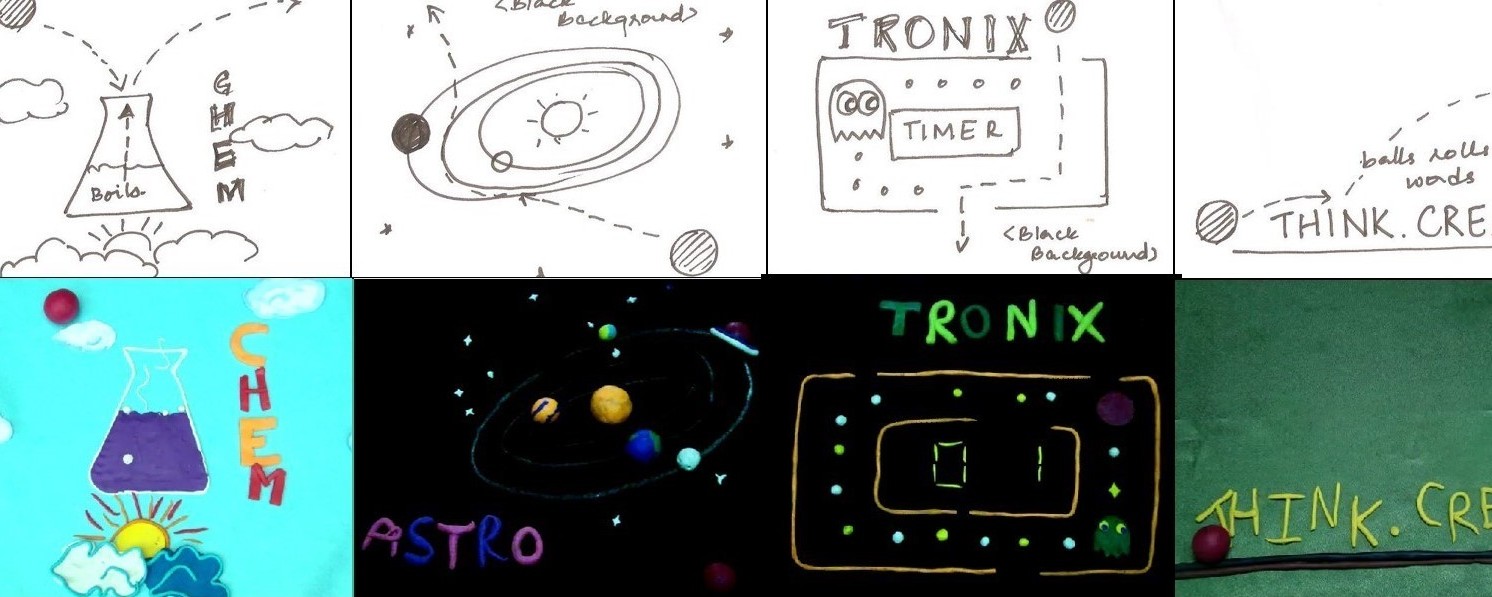 <Black
Background>
CHEM
Boils.
TRONIX
TIMER
<Black
Background>
balls rolls
words
THINK. CRE
CHEM
ASTRO
TRONIX
01
THINK. CRE